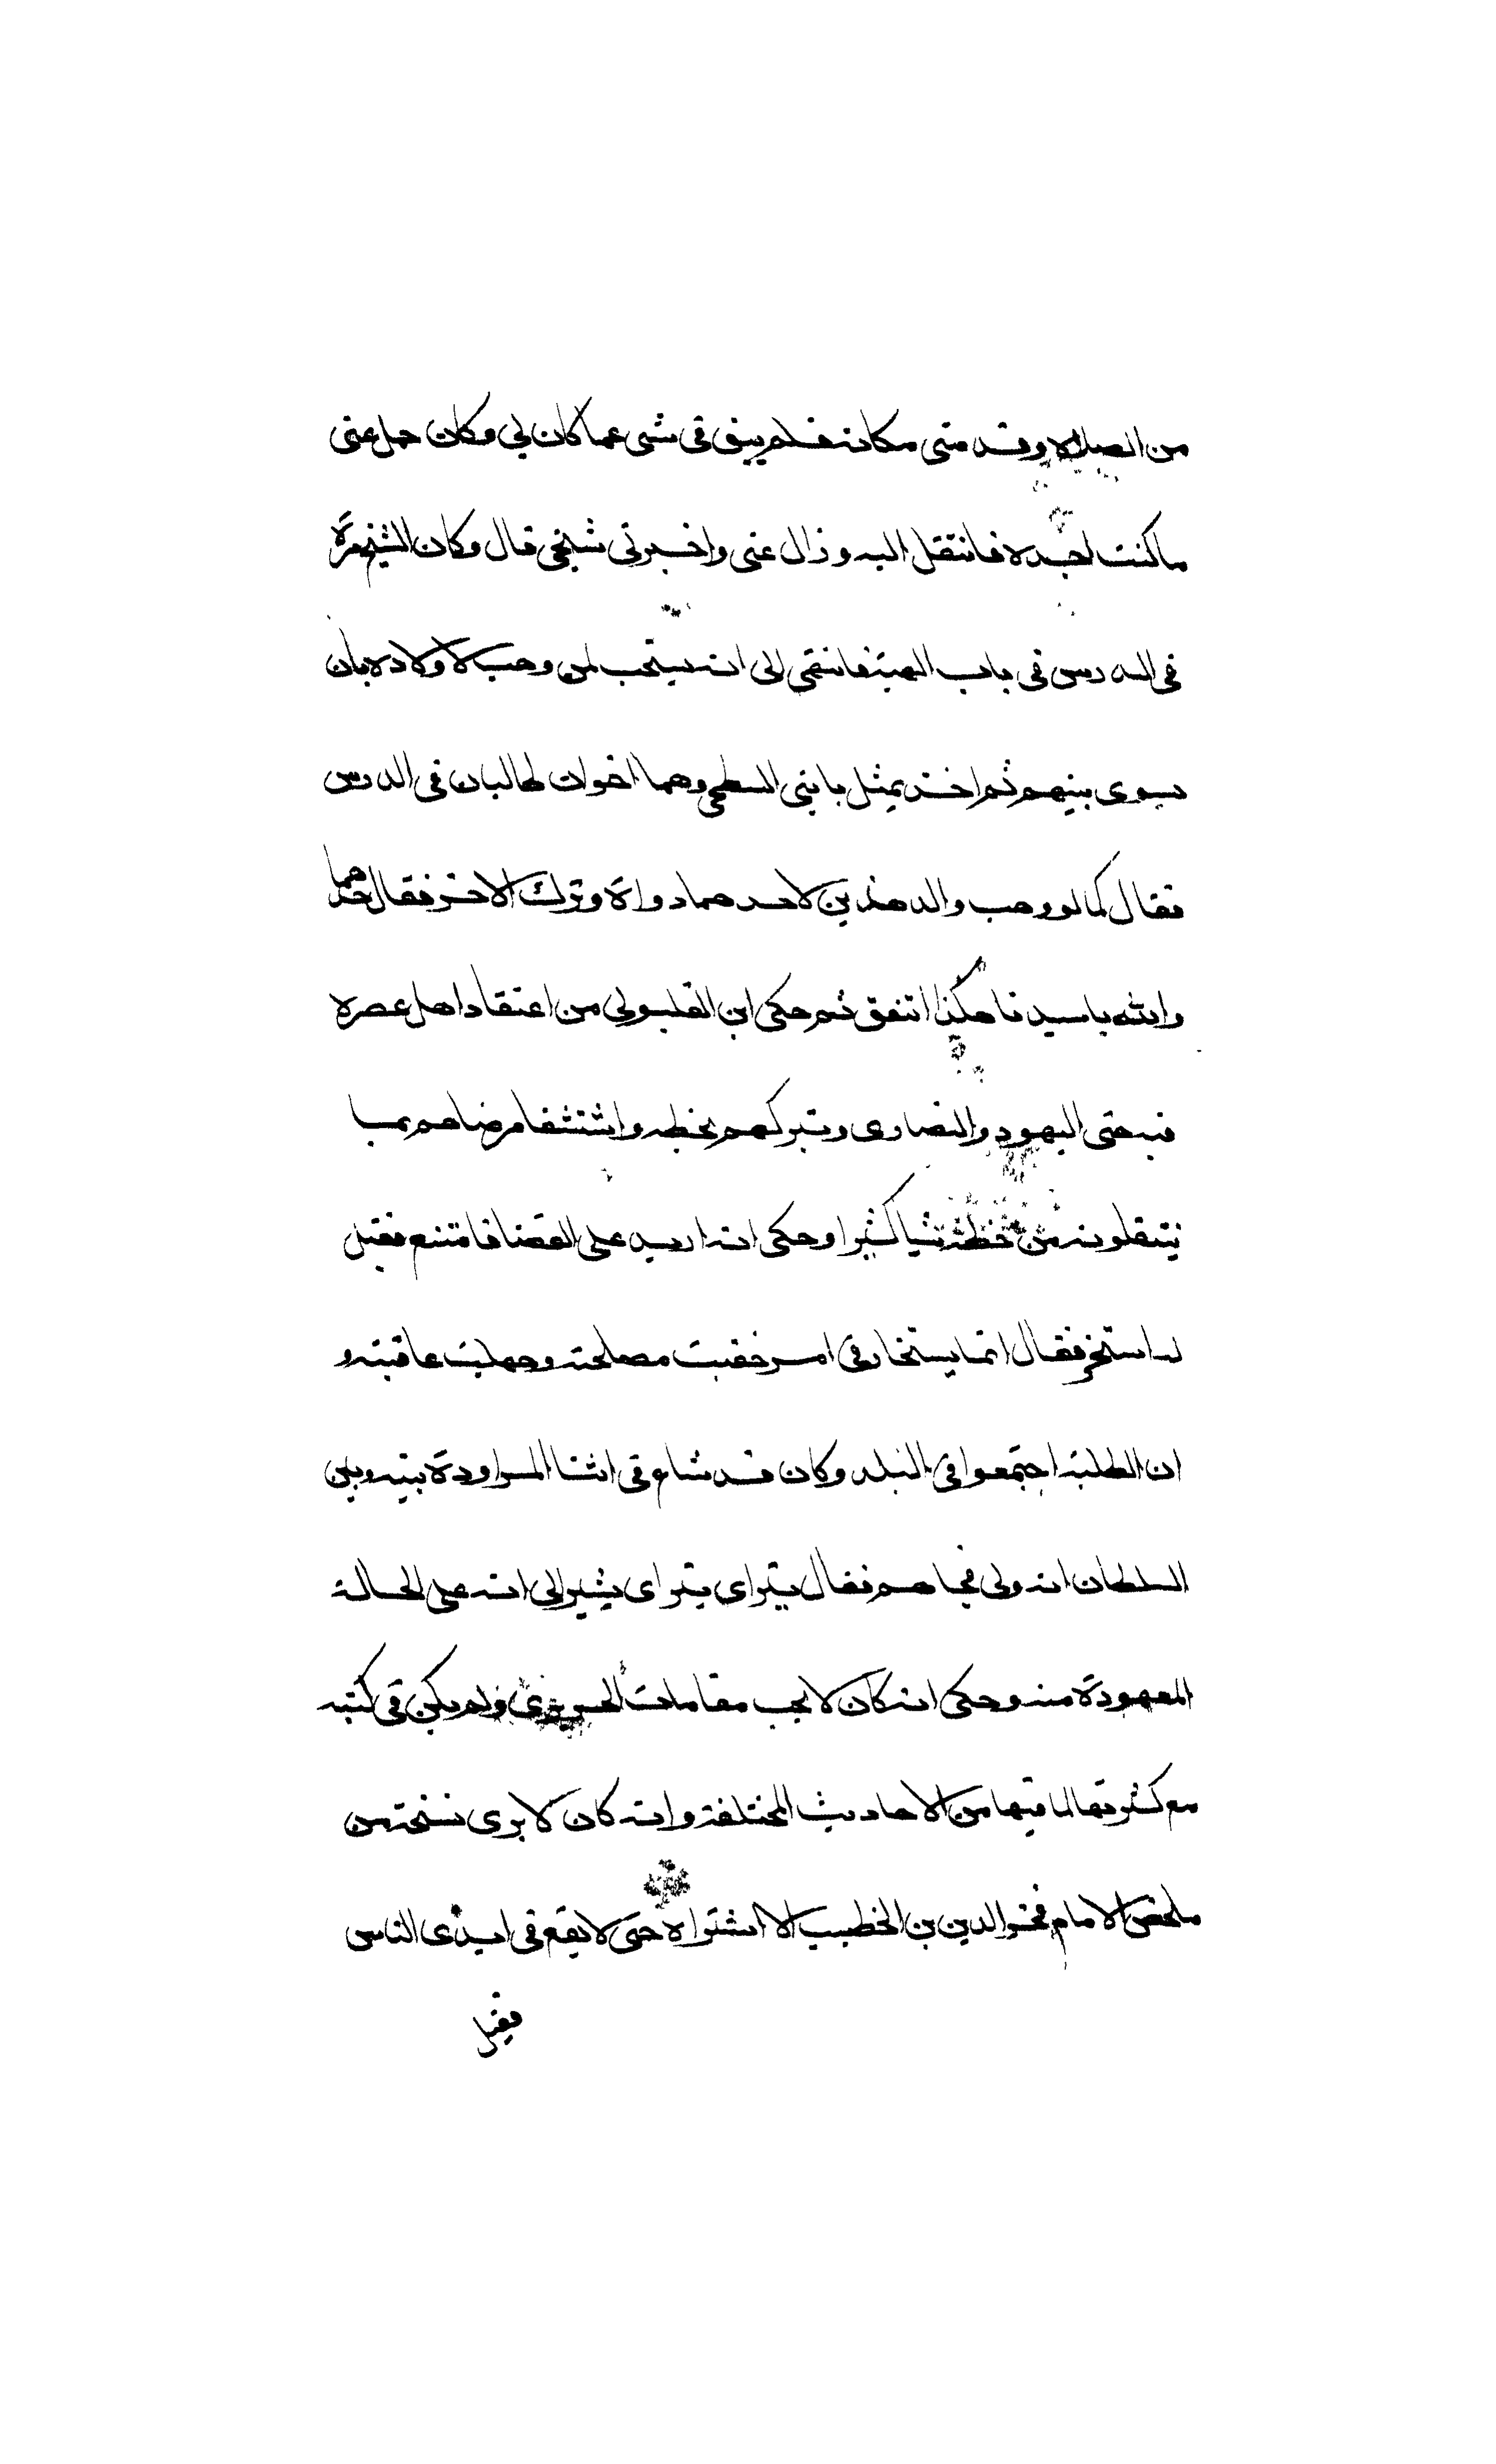 من الصلاة وقد متى مكانه فلم يبق فى شى عما كان لي وكان حمل عنى
ما كنت اجده فانتقل اليه وزال عنى واخبرنى شيخى قال وكان الشيخ مرة
فى الدرس فى باب الهبة فانتهى الى انه يستحب لمن وهب لاولاده بان
يسوى بينهم ثم اخذ يمثل بابنى السطحى وهما اخوان طالبان فى الدرس
فقال كما لو وهب والد هذين لاحدهما دواة وترك الاخر فقال احدهما
والله ياسيدنا هكذا اتفق ثم حكى ابن القليوبي من اعتقاد اهل عصره
فيه حتى اليهود والنصارى وتبركهم بخطه واشتشفا مرضاهم بما
ينقلونه من خطه شيا كثيرا وحكى انه اريد على القضا فامتنع فقيل
له استخر فقال انما يستخار فى امر خفيت مصلحته وجهلت عاقبته و
ان الطلبة اجتمعوا فى البلد وكان قد شاع فى اثنا المراودة بينه وبين
السلطان انه ولى فجاهم فقال يتراى يتراى يشير الى انه على الحالة
المعهودة منه وحكى انه كان لا يحب مقامات الحريرى ولم يكن فى كتبه
مع كثرتها لما فيها من الاحاديث المختلفة وانه كان لا يرى نسخة من
ملخص الامام فخر الدين بن الخطيب الا اشتراه حتى لا يقع فى ايدى الناس
فقيل